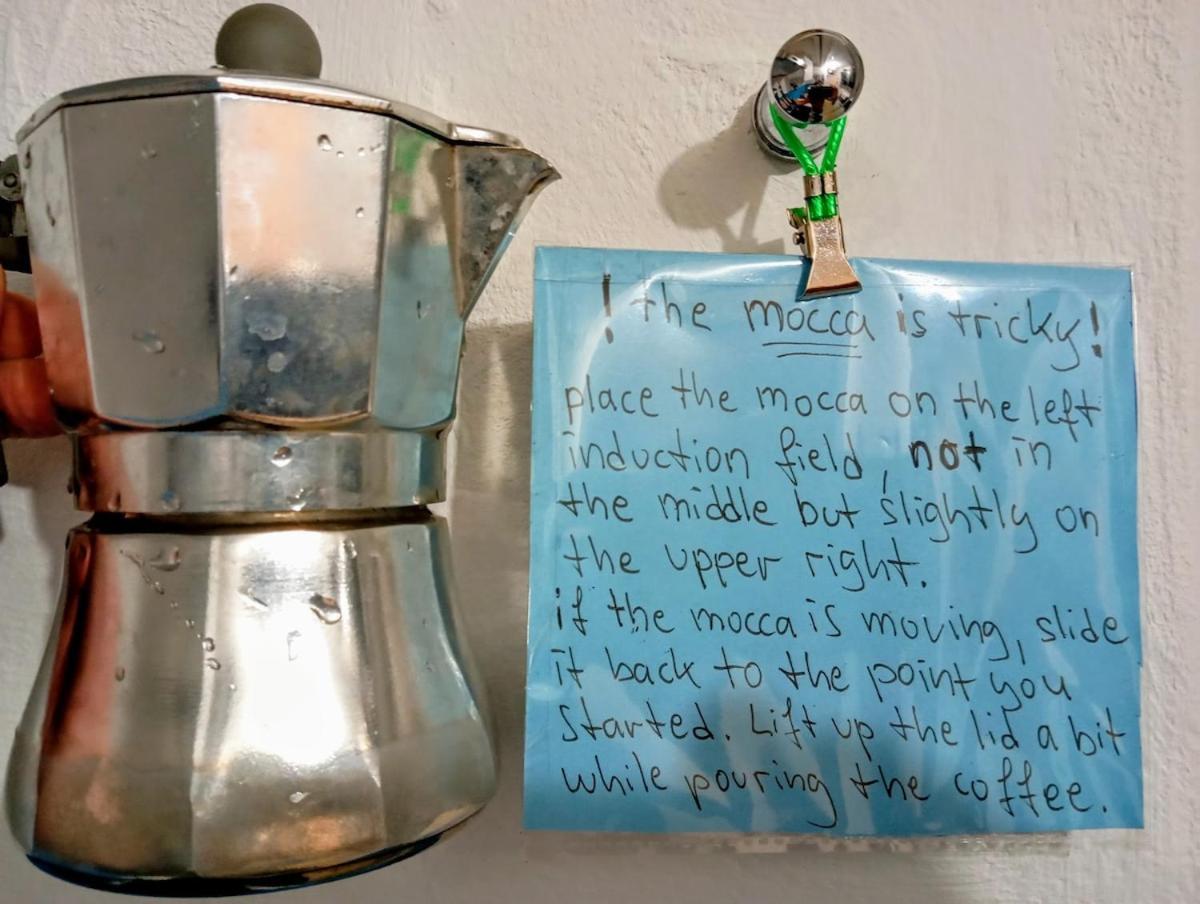 ! the mocca is tricky!
place the mocca on the left
induction field, not in
the middle but slightly on
the upper right.
if the mocca is moving, slide
it back to the point you
started. Lift up the lid a bit
while pouring the coffee.